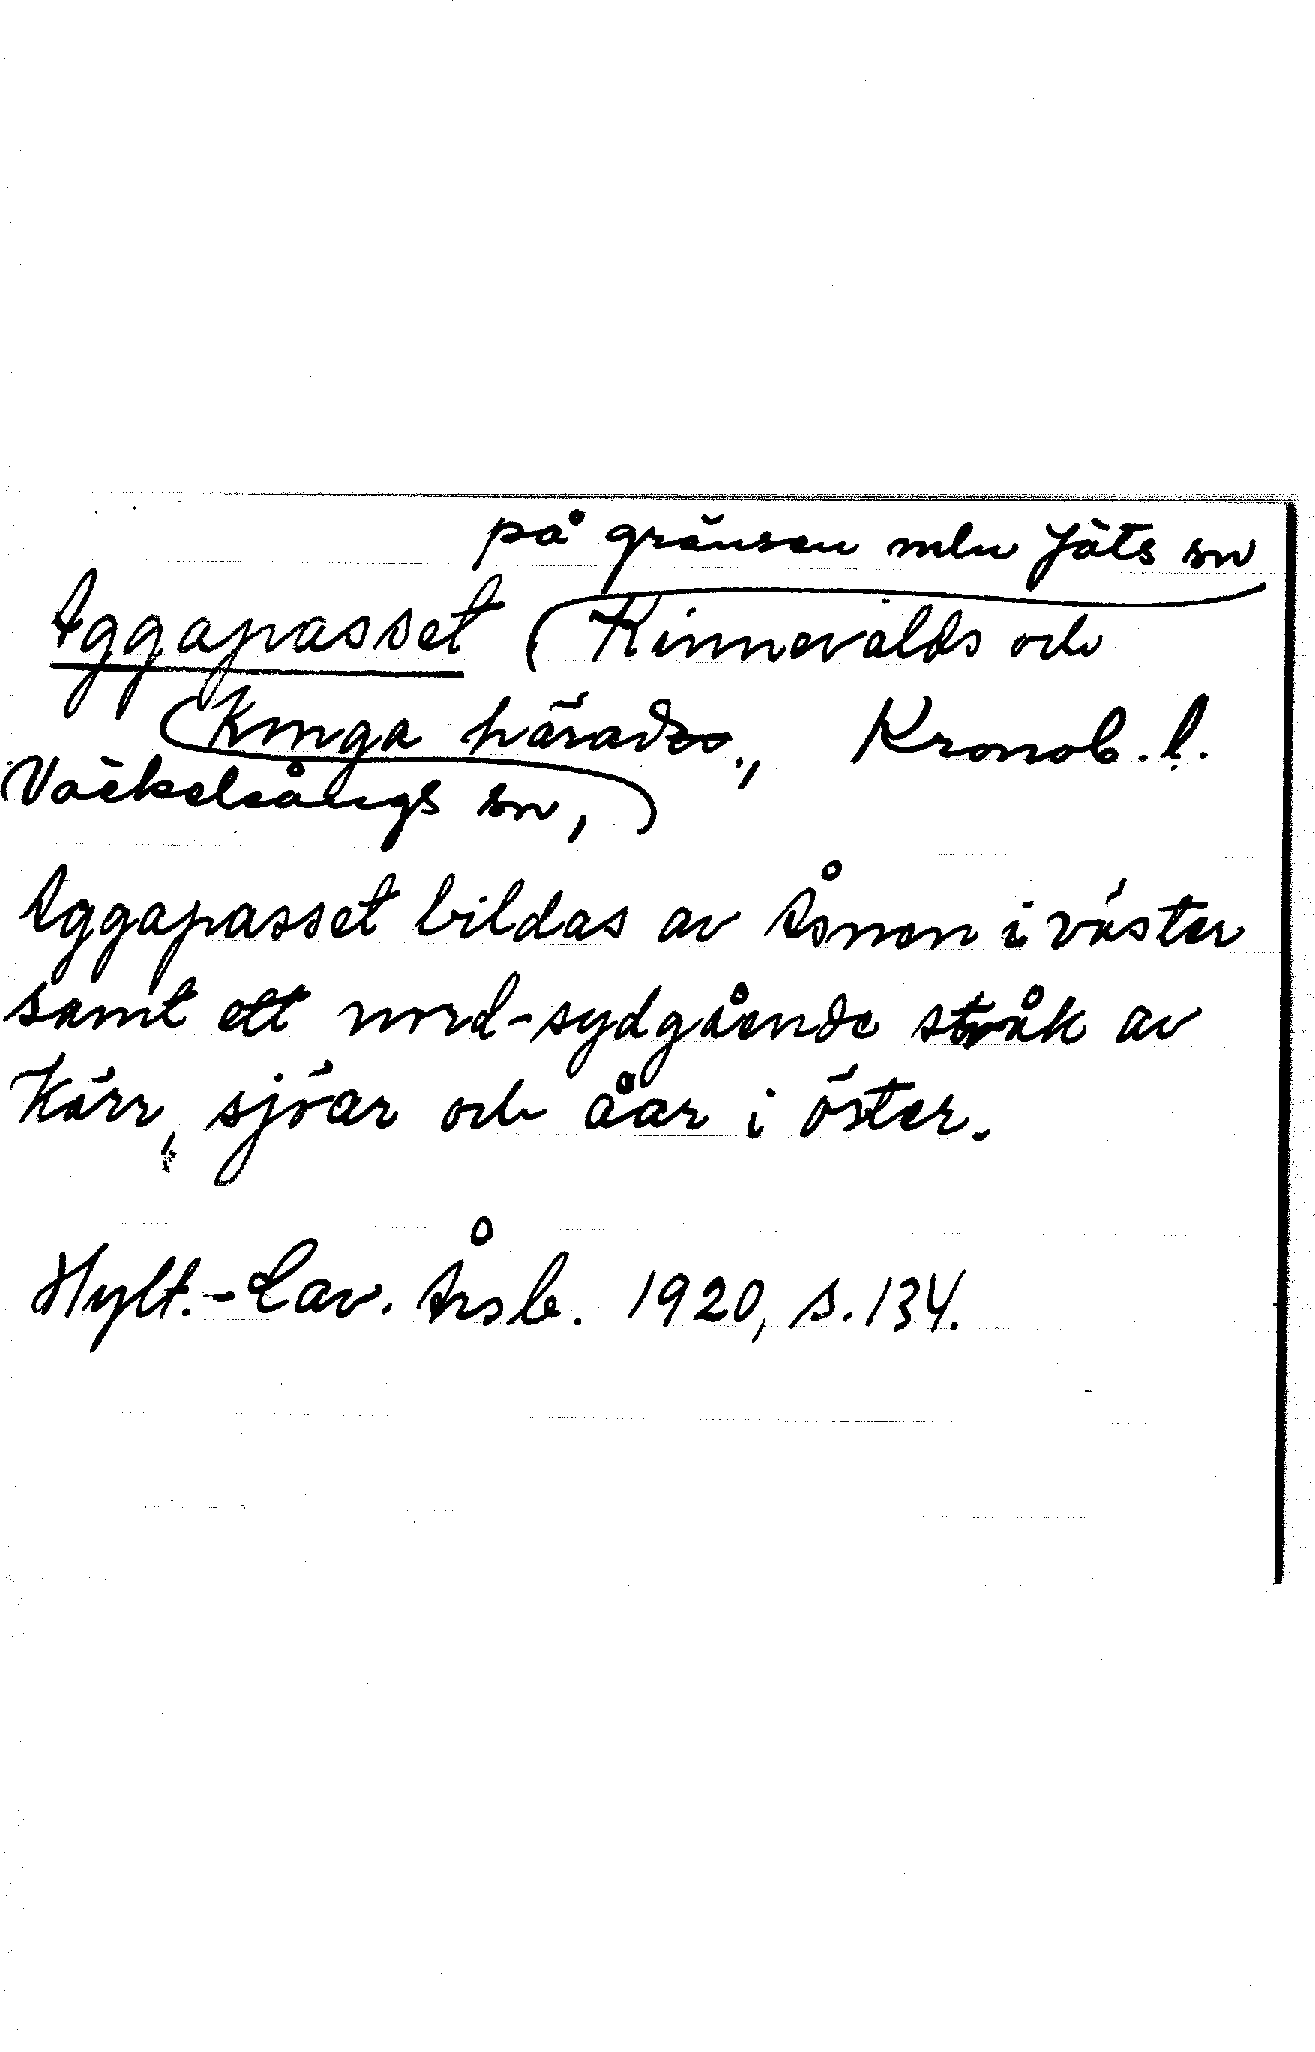 på gränsen mln Jäts sn
Aggapasset (Kinnevalds och
Konga härad., Kronob. l.
Väckelsångs sn,)
Aggapasset bildas av Åsnen i väster
samt ett nord-sydgående stråk av
kärr, sjöar och åar i öster.
Hylt.-Cav. Årsb. 1920, s. 134.